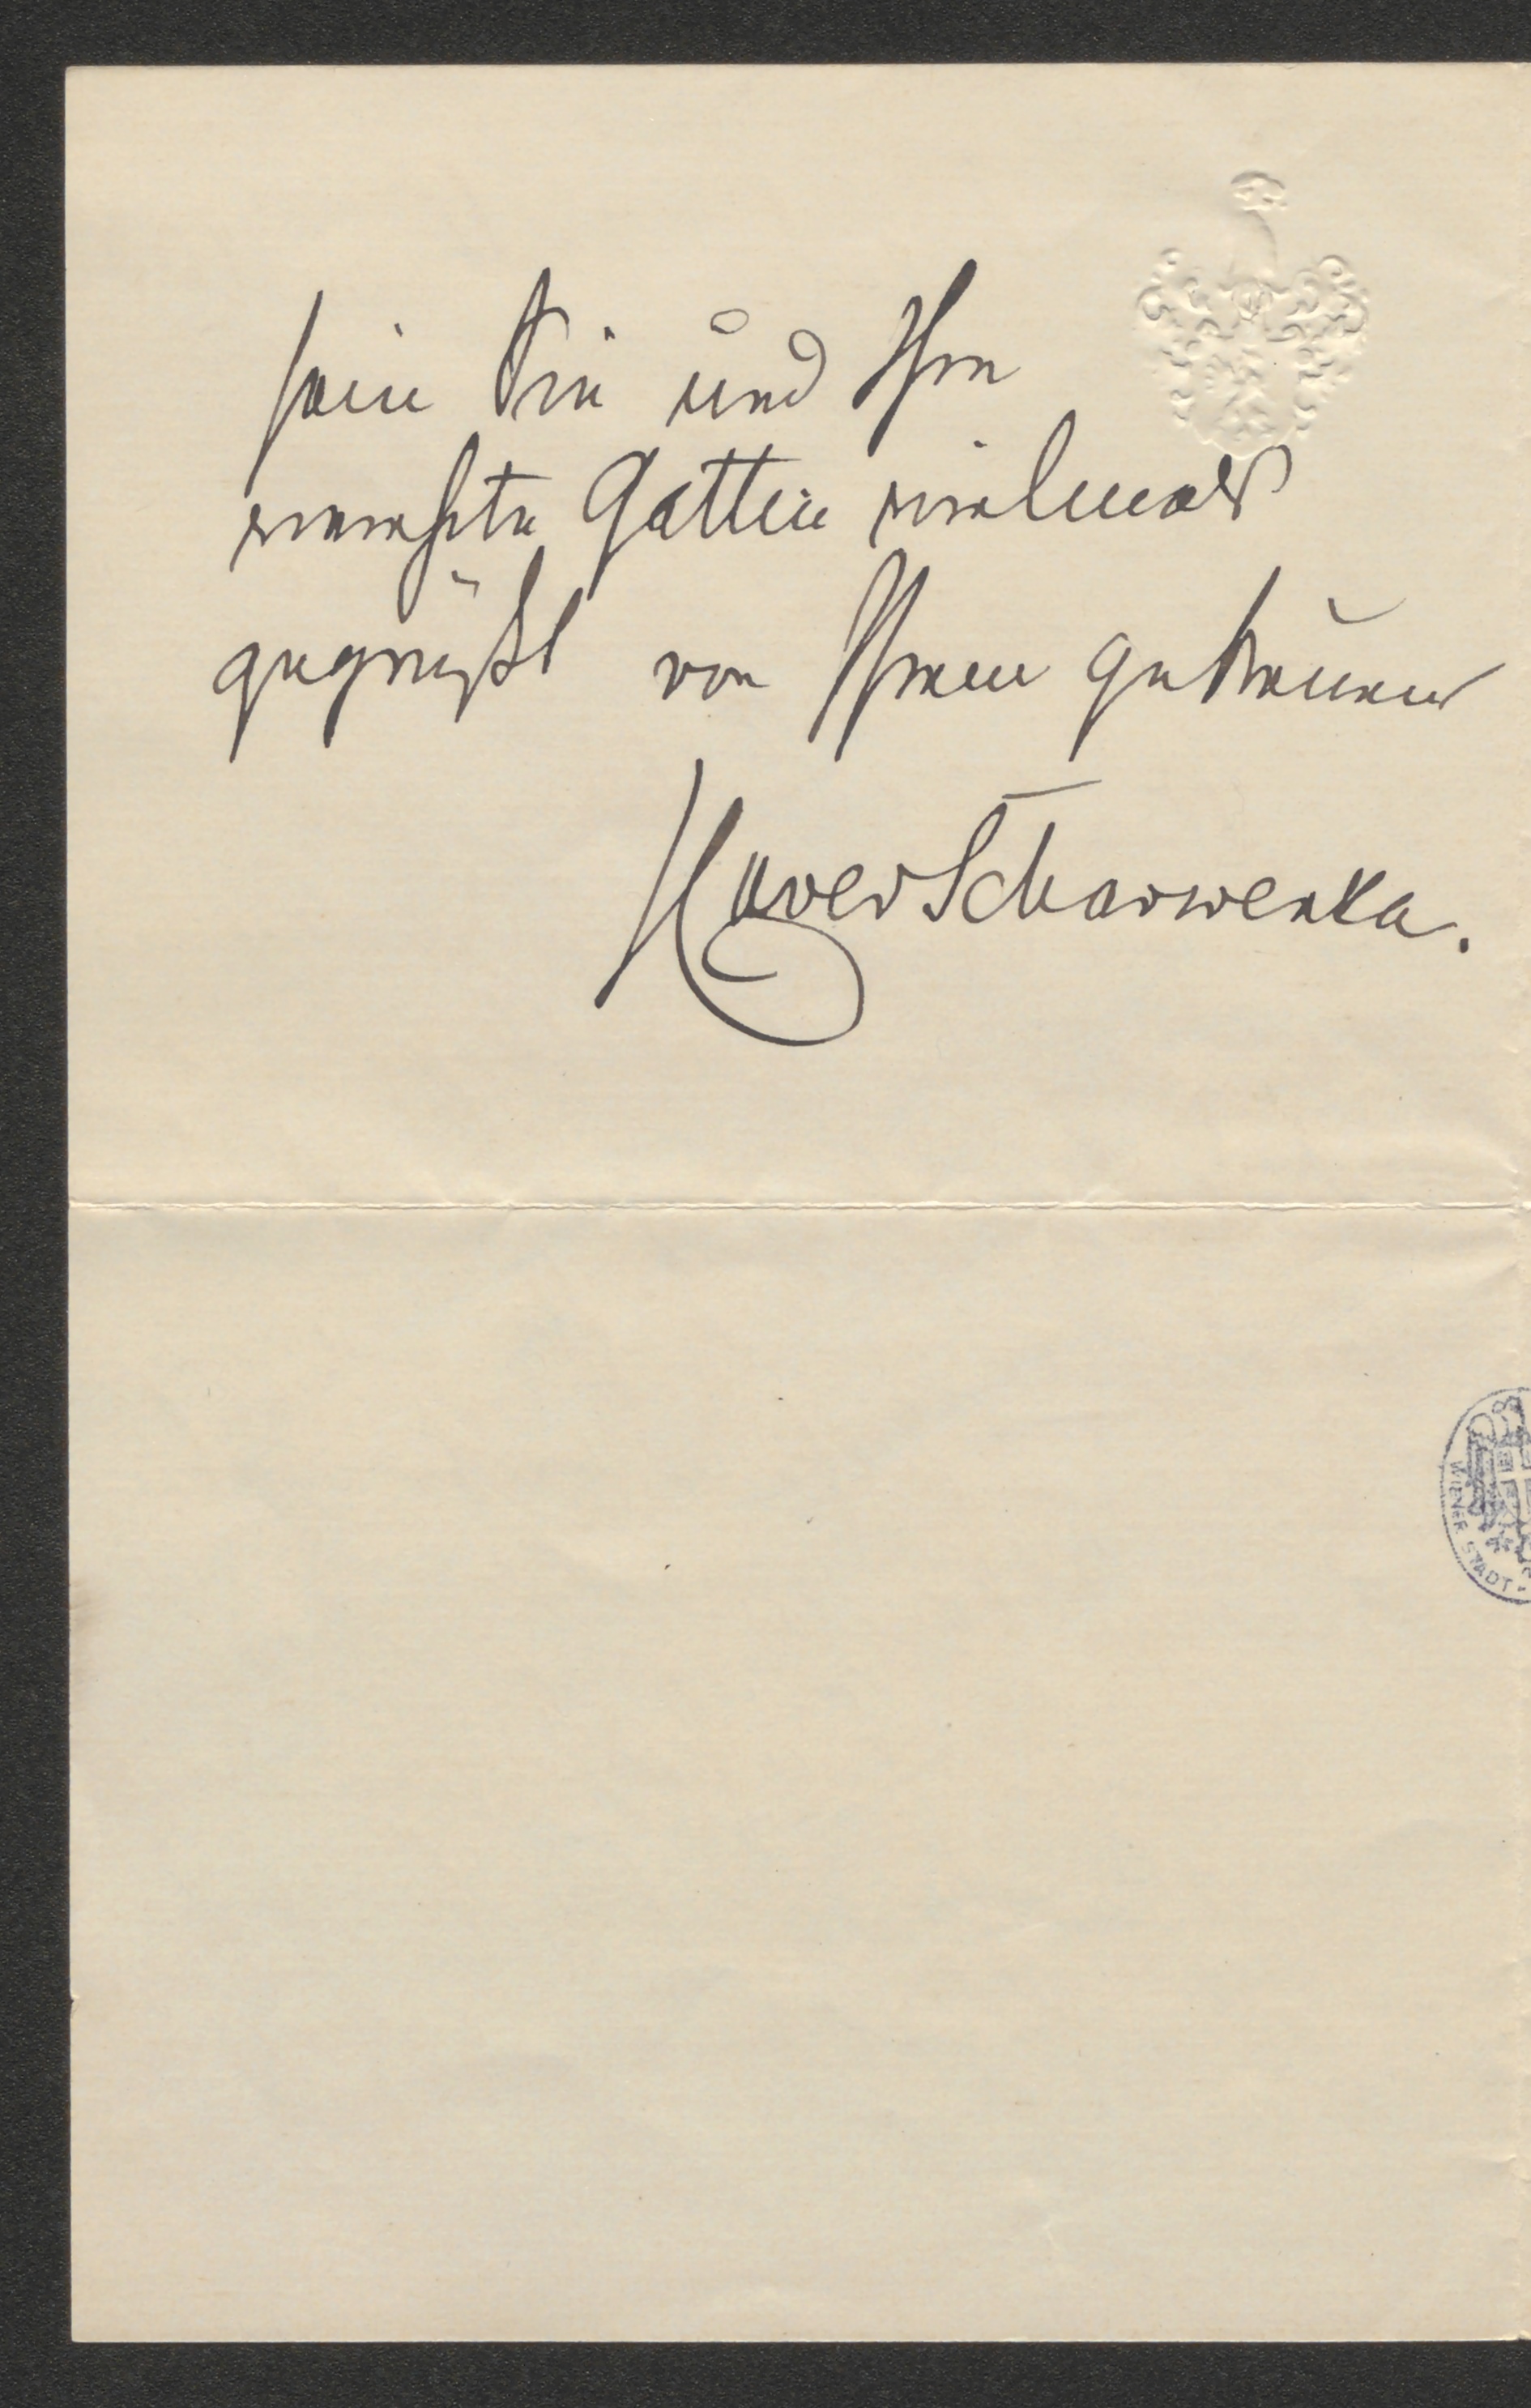 sein Sie und Ihre
verehrte Gattin vielmals
gegrüßt von Ihrem getreuen
Xaver Scharwenka.
WIENER STADT-